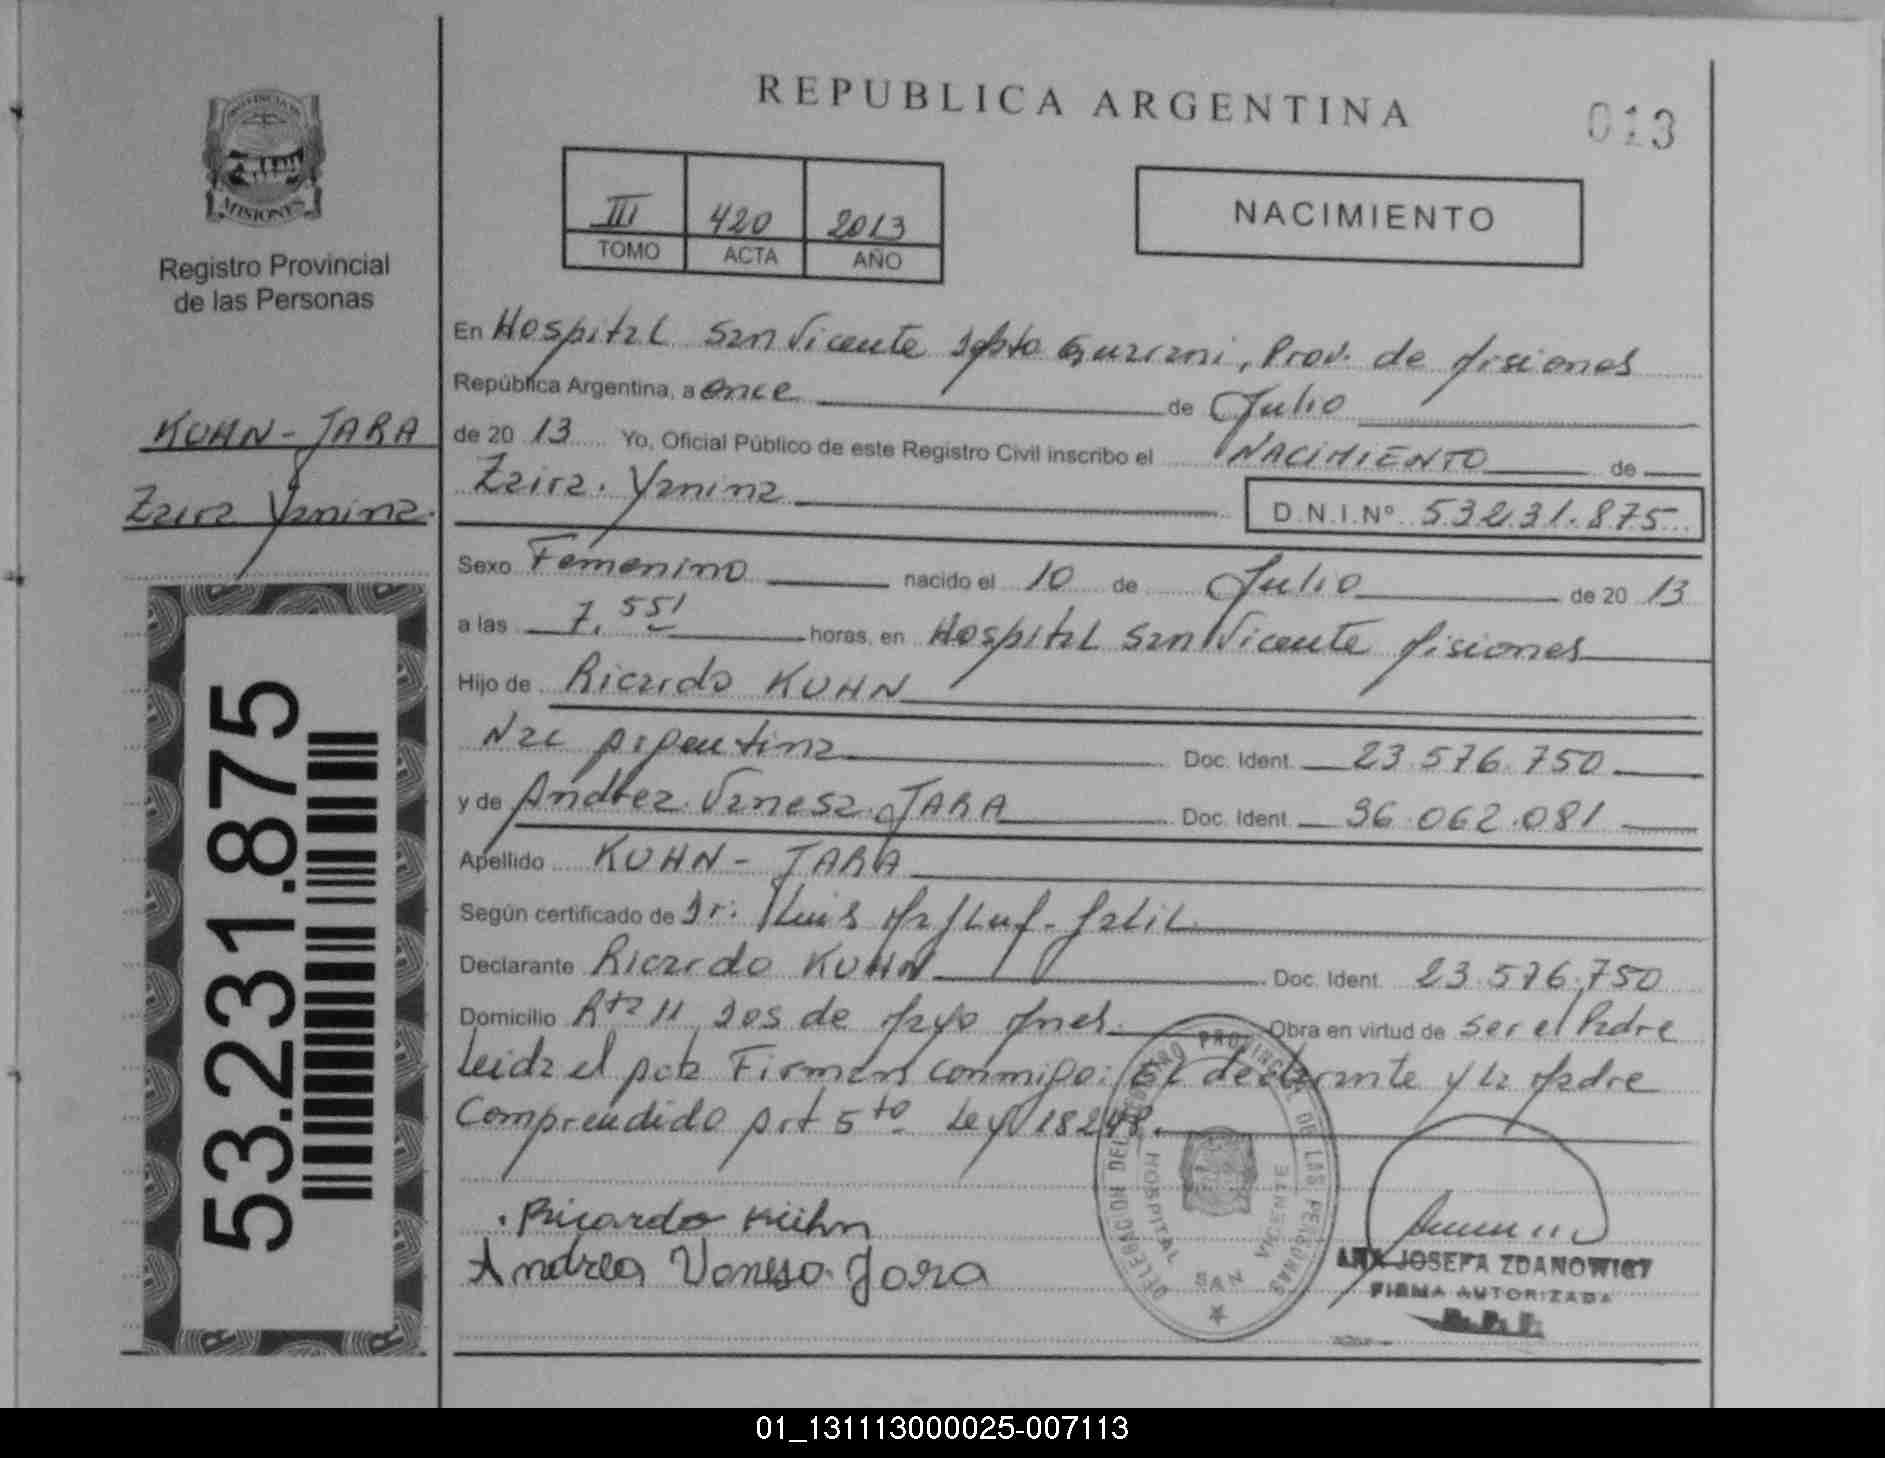 REPUBLICA ARGENTINA
013
MISIONES
Registro Provincial
de las Personas
III 420 2013
TOMO ACTA AÑO
NACIMIENTO
KUHN - JARA
Zaira Yanina.
53.231.875
En Hospital San Vicente Dpto Guarani, Prov. de Misiones
República Argentina, a once de Julio
de 20 13 Yo, Oficial Público de este Registro Civil inscribo el NACIMIENTO de
Zaira. Yanina D.N.I.Nº 53.231.875
Sexo Femenino nacido el 10 de Julio de 20 13
a las 7,55' horas, en Hospital San Vicente Misiones
Hijo de Ricardo KUHN
Nac Argentina Doc. Ident. 23.576.750
y de Andrea Vanesa JARA Doc. Ident. 36.062.081
Apellido KUHN - JARA
Según certificado de Dr: Luis
Declarante Ricardo KUHN Doc. Ident. 23.576.750
Domicilio Rta 11 Dos de Mayo Mnes. Obra en virtud de ser el Padre
Leida el acta Firman conmigo: El declarante y la Madre
Comprendido Art 5to Ley 18248.
Ricardo Kuhn
Andrea Vanesa Jara
DELEGACION DEL REGISTRO PROVINCIAL DE LAS PERSONAS
HOSPITAL SAN VICENTE
ANA JOSEFA ZDANOWICZ
FIRMA AUTORIZADA
01_131113000025-007113